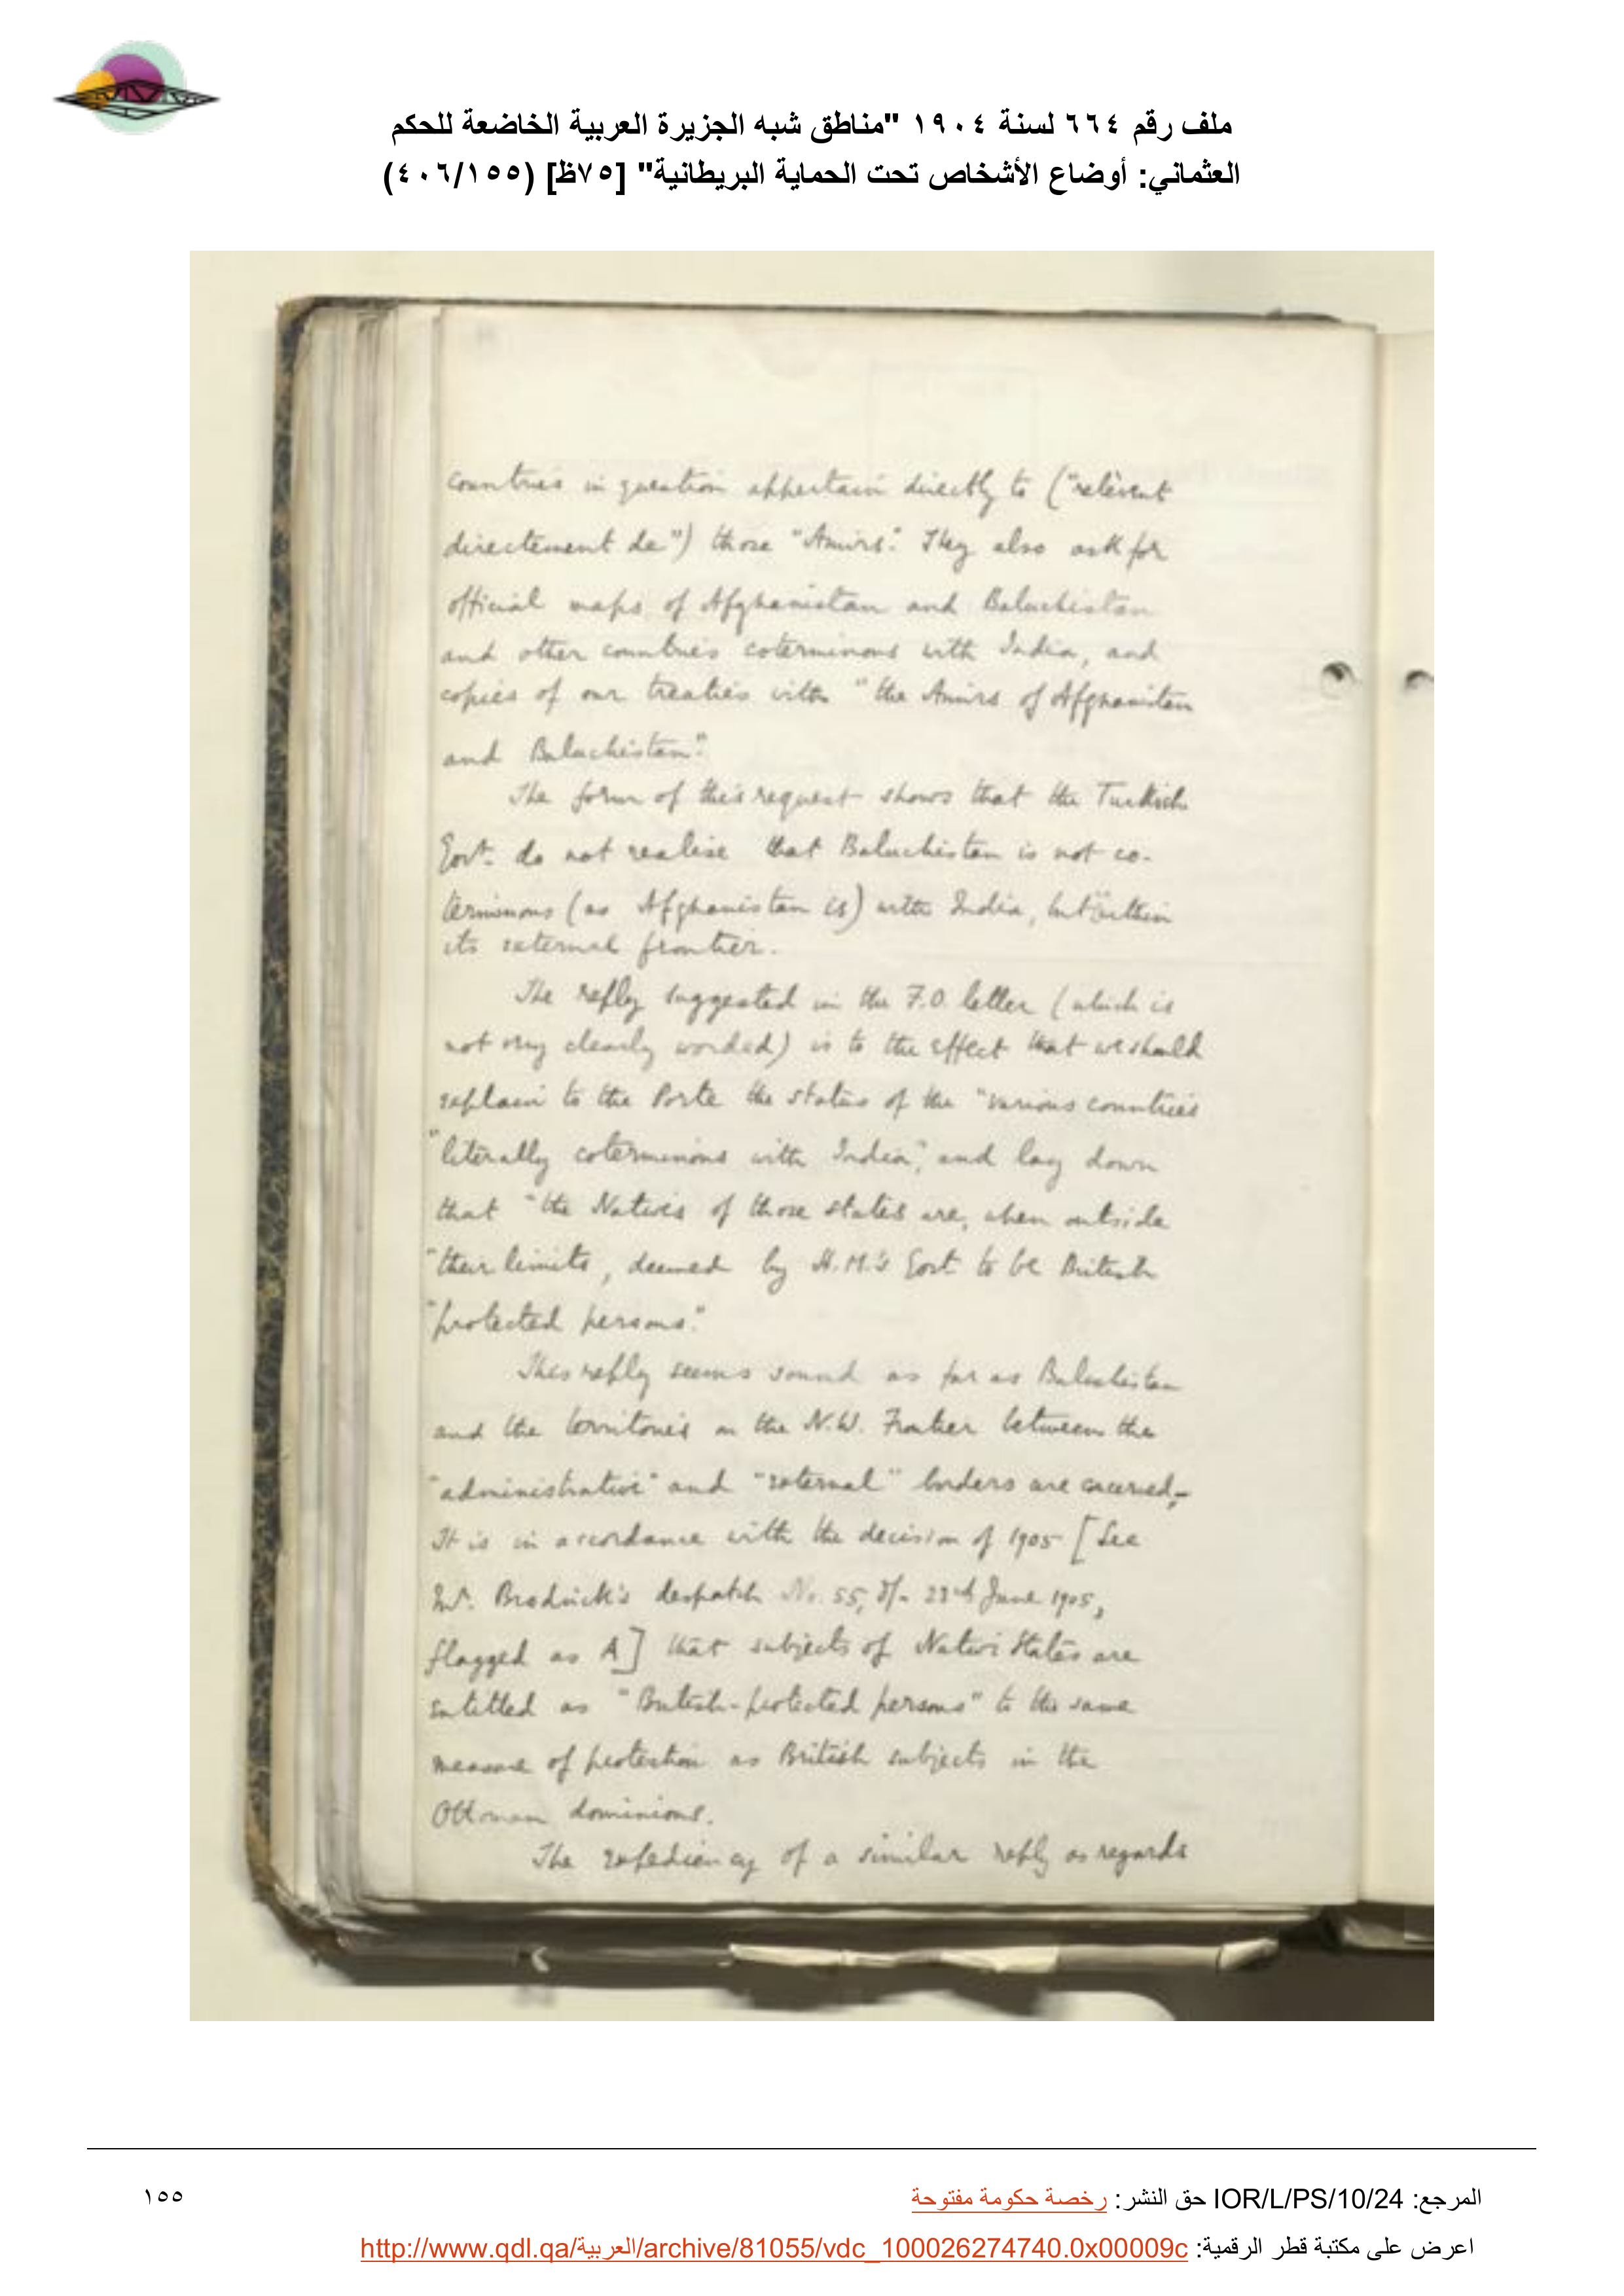 ملف رقم ٦٦٤ لسنة ١٩٠٤ "مناطق شبه الجزيرة العربية الخاضعة للحكم
العثماني: أوضاع الأشخاص تحت الحماية البريطانية" [٧٥ظ] (٤٠٦/١٥٥)
countries in question appertain directly to ("relèvent
directement de") those "Amirs". They also ask for
official maps of Afghanistan and Baluchistan
and other countries coterminous with India, and
copies of our treaties with "the Amirs of Afghanistan
and Baluchistan".
The form of this request shows that the Turkish
Govt. do not realise that Baluchistan is not co-
terminous (as Afghanistan is) with India, but within
its external frontier.
The reply suggested in the F.O. letter (which is
not very clearly worded) is to the effect that we should
explain to the Porte the status of the "various countries
"literally coterminous with India", and lay down
that "the Natives of those states are, when outside
"their limits, deemed by H.M.'s Govt. to be British
"protected persons."
This reply seems sound as far as Baluchistan
and the territories on the N.W. Frontier between the
"administrative" and "external" borders are concerned,-
It is in accordance with the decision of 1905 [See
Mr. Brodrick's despatch No. 55, d/- 23rd June 1905,
flagged as A] that subjects of Native States are
entitled as "British-protected persons" to the same
measure of protection as British subjects in the
Ottoman dominions.
The expediency of a similar reply as regards
المرجع: IOR/L/PS/10/24 حق النشر: رخصة حكومة مفتوحة
١٥٥
اعرض على مكتبة قطر الرقمية: http://www.qdl.qa/العربية/archive/81055/vdc_100026274740.0x00009c